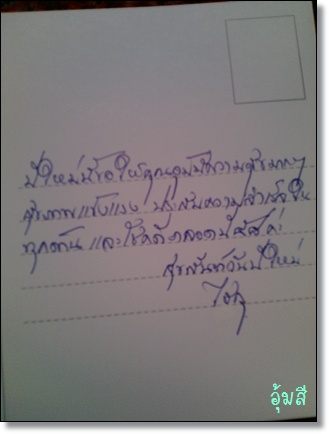 ปีใหม่นี้ขอให้คุณอุ้มมีความสุขมากๆ
สุขภาพแข็งแรง ประสบความสำเร็จใน
ทุกด้าน และโชคดีตลอดปีค่ะ
สุขสันต์วันปีใหม่
อุ้มสี